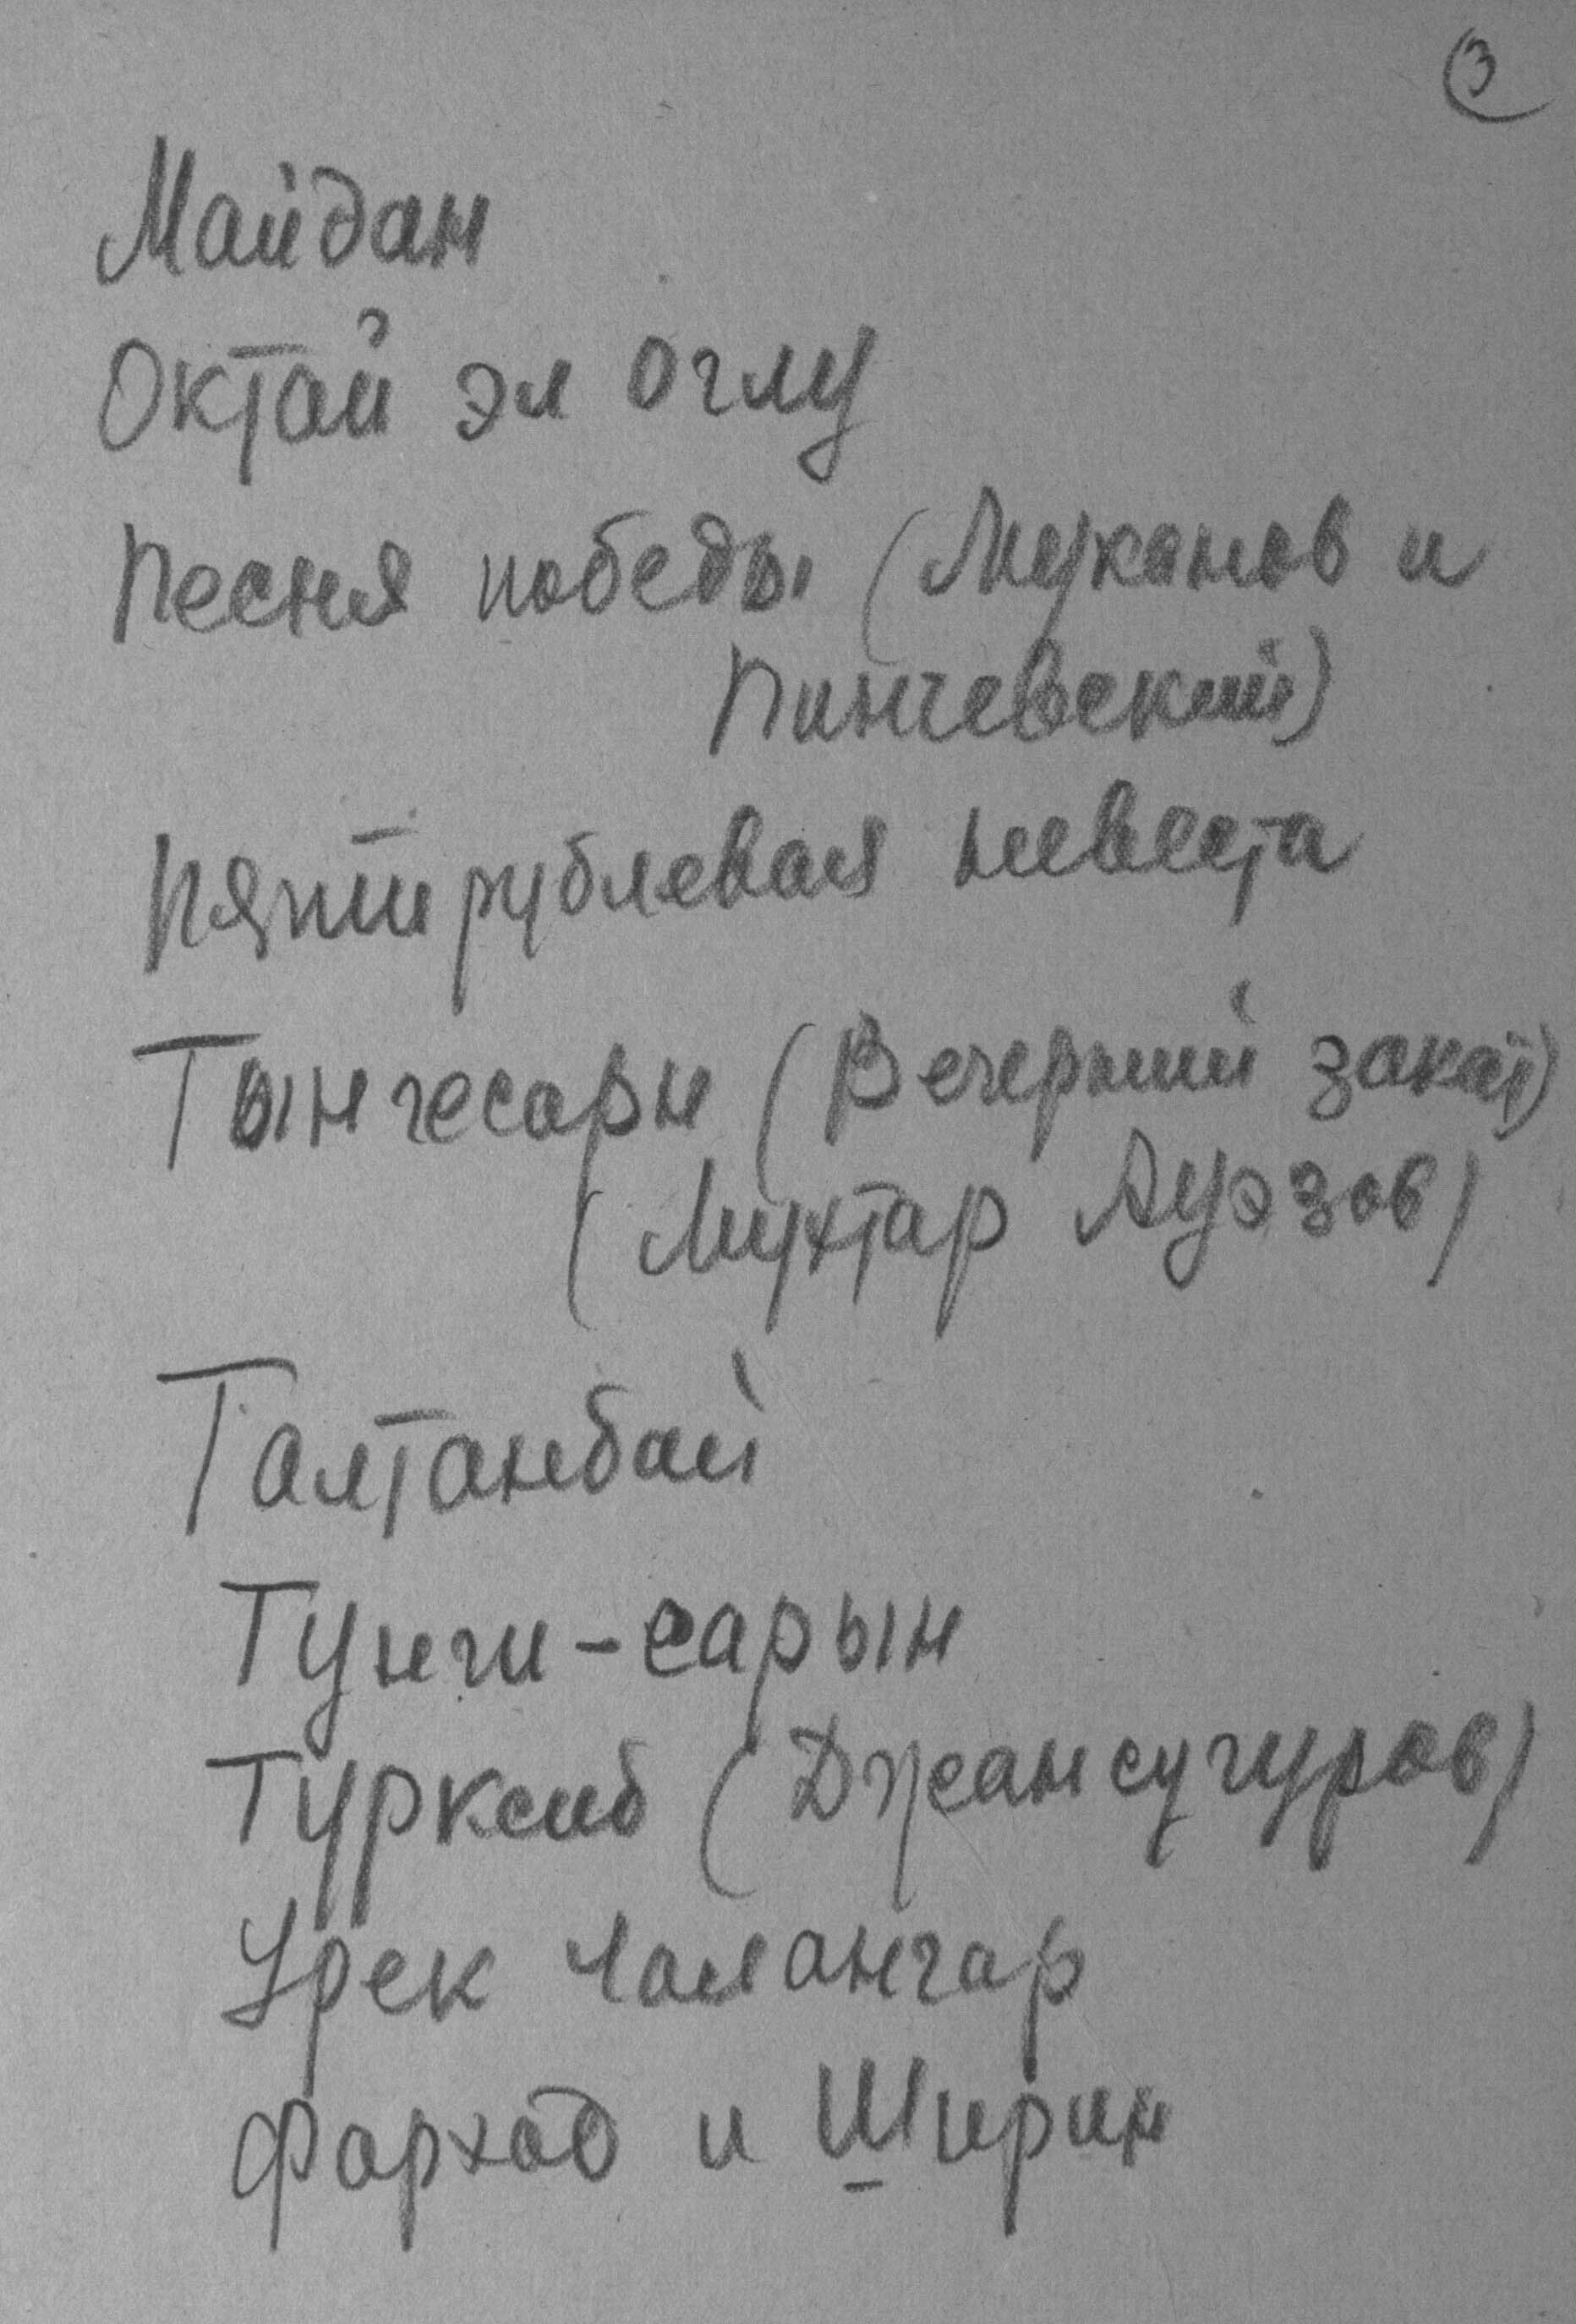 3
Майдан
Октай эл оглу
Песня победы (Муканов и
Пинчевский)
Пятирублевая невеста
Тынгесары (Вечерний закат)
(Мухтар Ауэзов)
Талтанбай
Тунги-сарын
Турксиб (Джансугуров)
Урек Чалангар
Фархад и Ширин